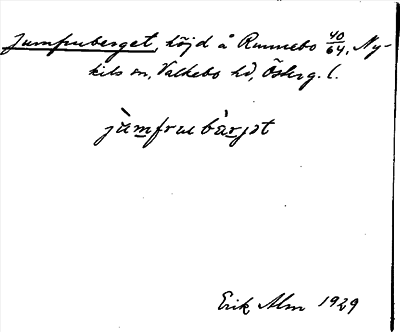 Jumfruberget, höjd å Runnebo 40/64, Ny-
kils sn, Valkebo hd, Österg. l.
jumfrubärjət
Erik Alm 1929